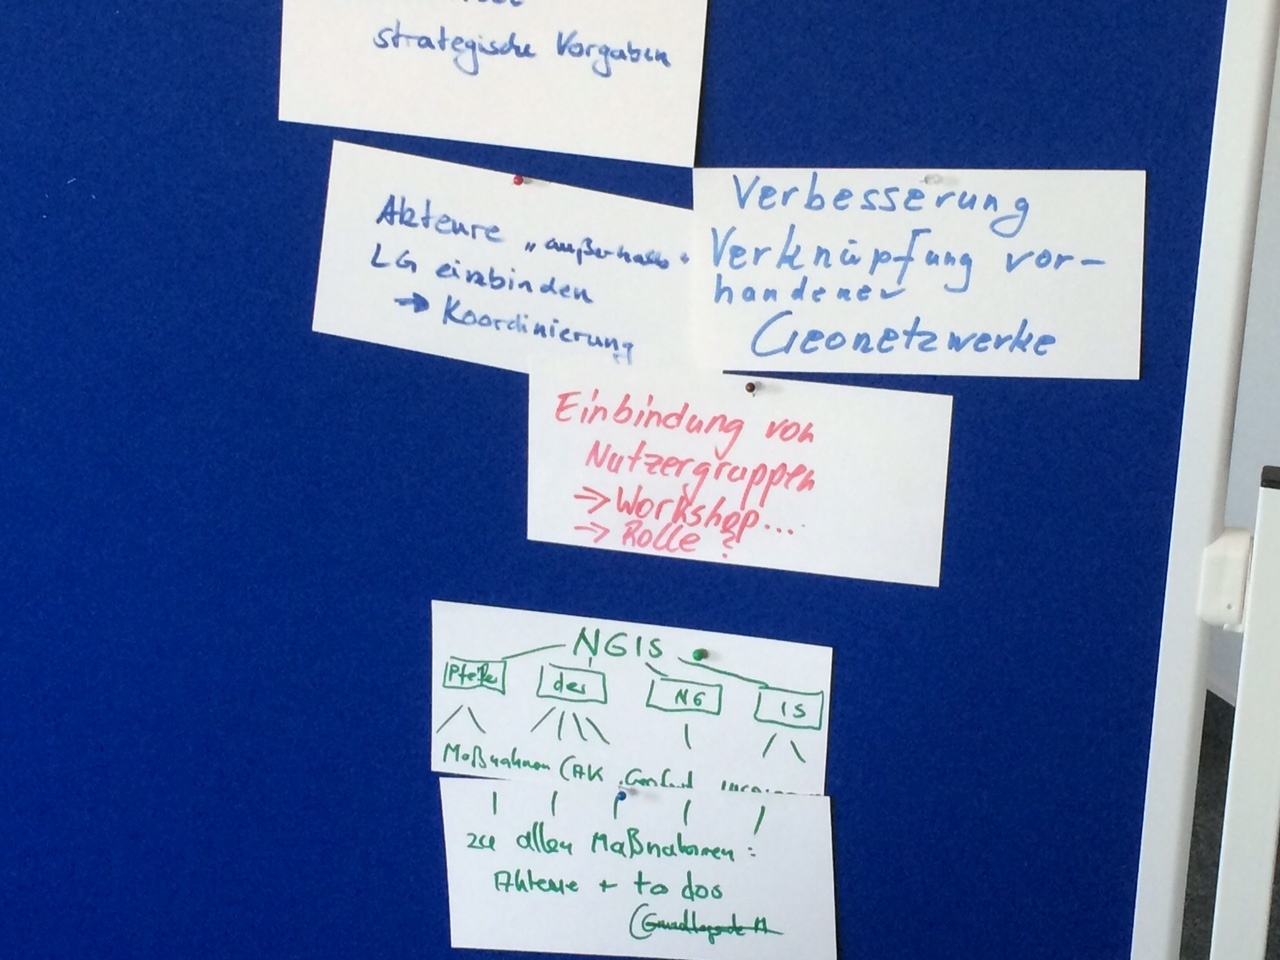 strategische Vorgaben
Akteure „außerhalb"
LG einbinden
→ Koordinierung
Verbesserung
Verknüpfung vor-
handener
Geonetzwerke
Einbindung von
Nutzergruppen
→ Workshop...
→ Rolle?
NGIS
Pfeiler des NG IS
Maßnahmen (AK
zu allen Maßnahmen:
Akteure + to dos
(Grundlegende M